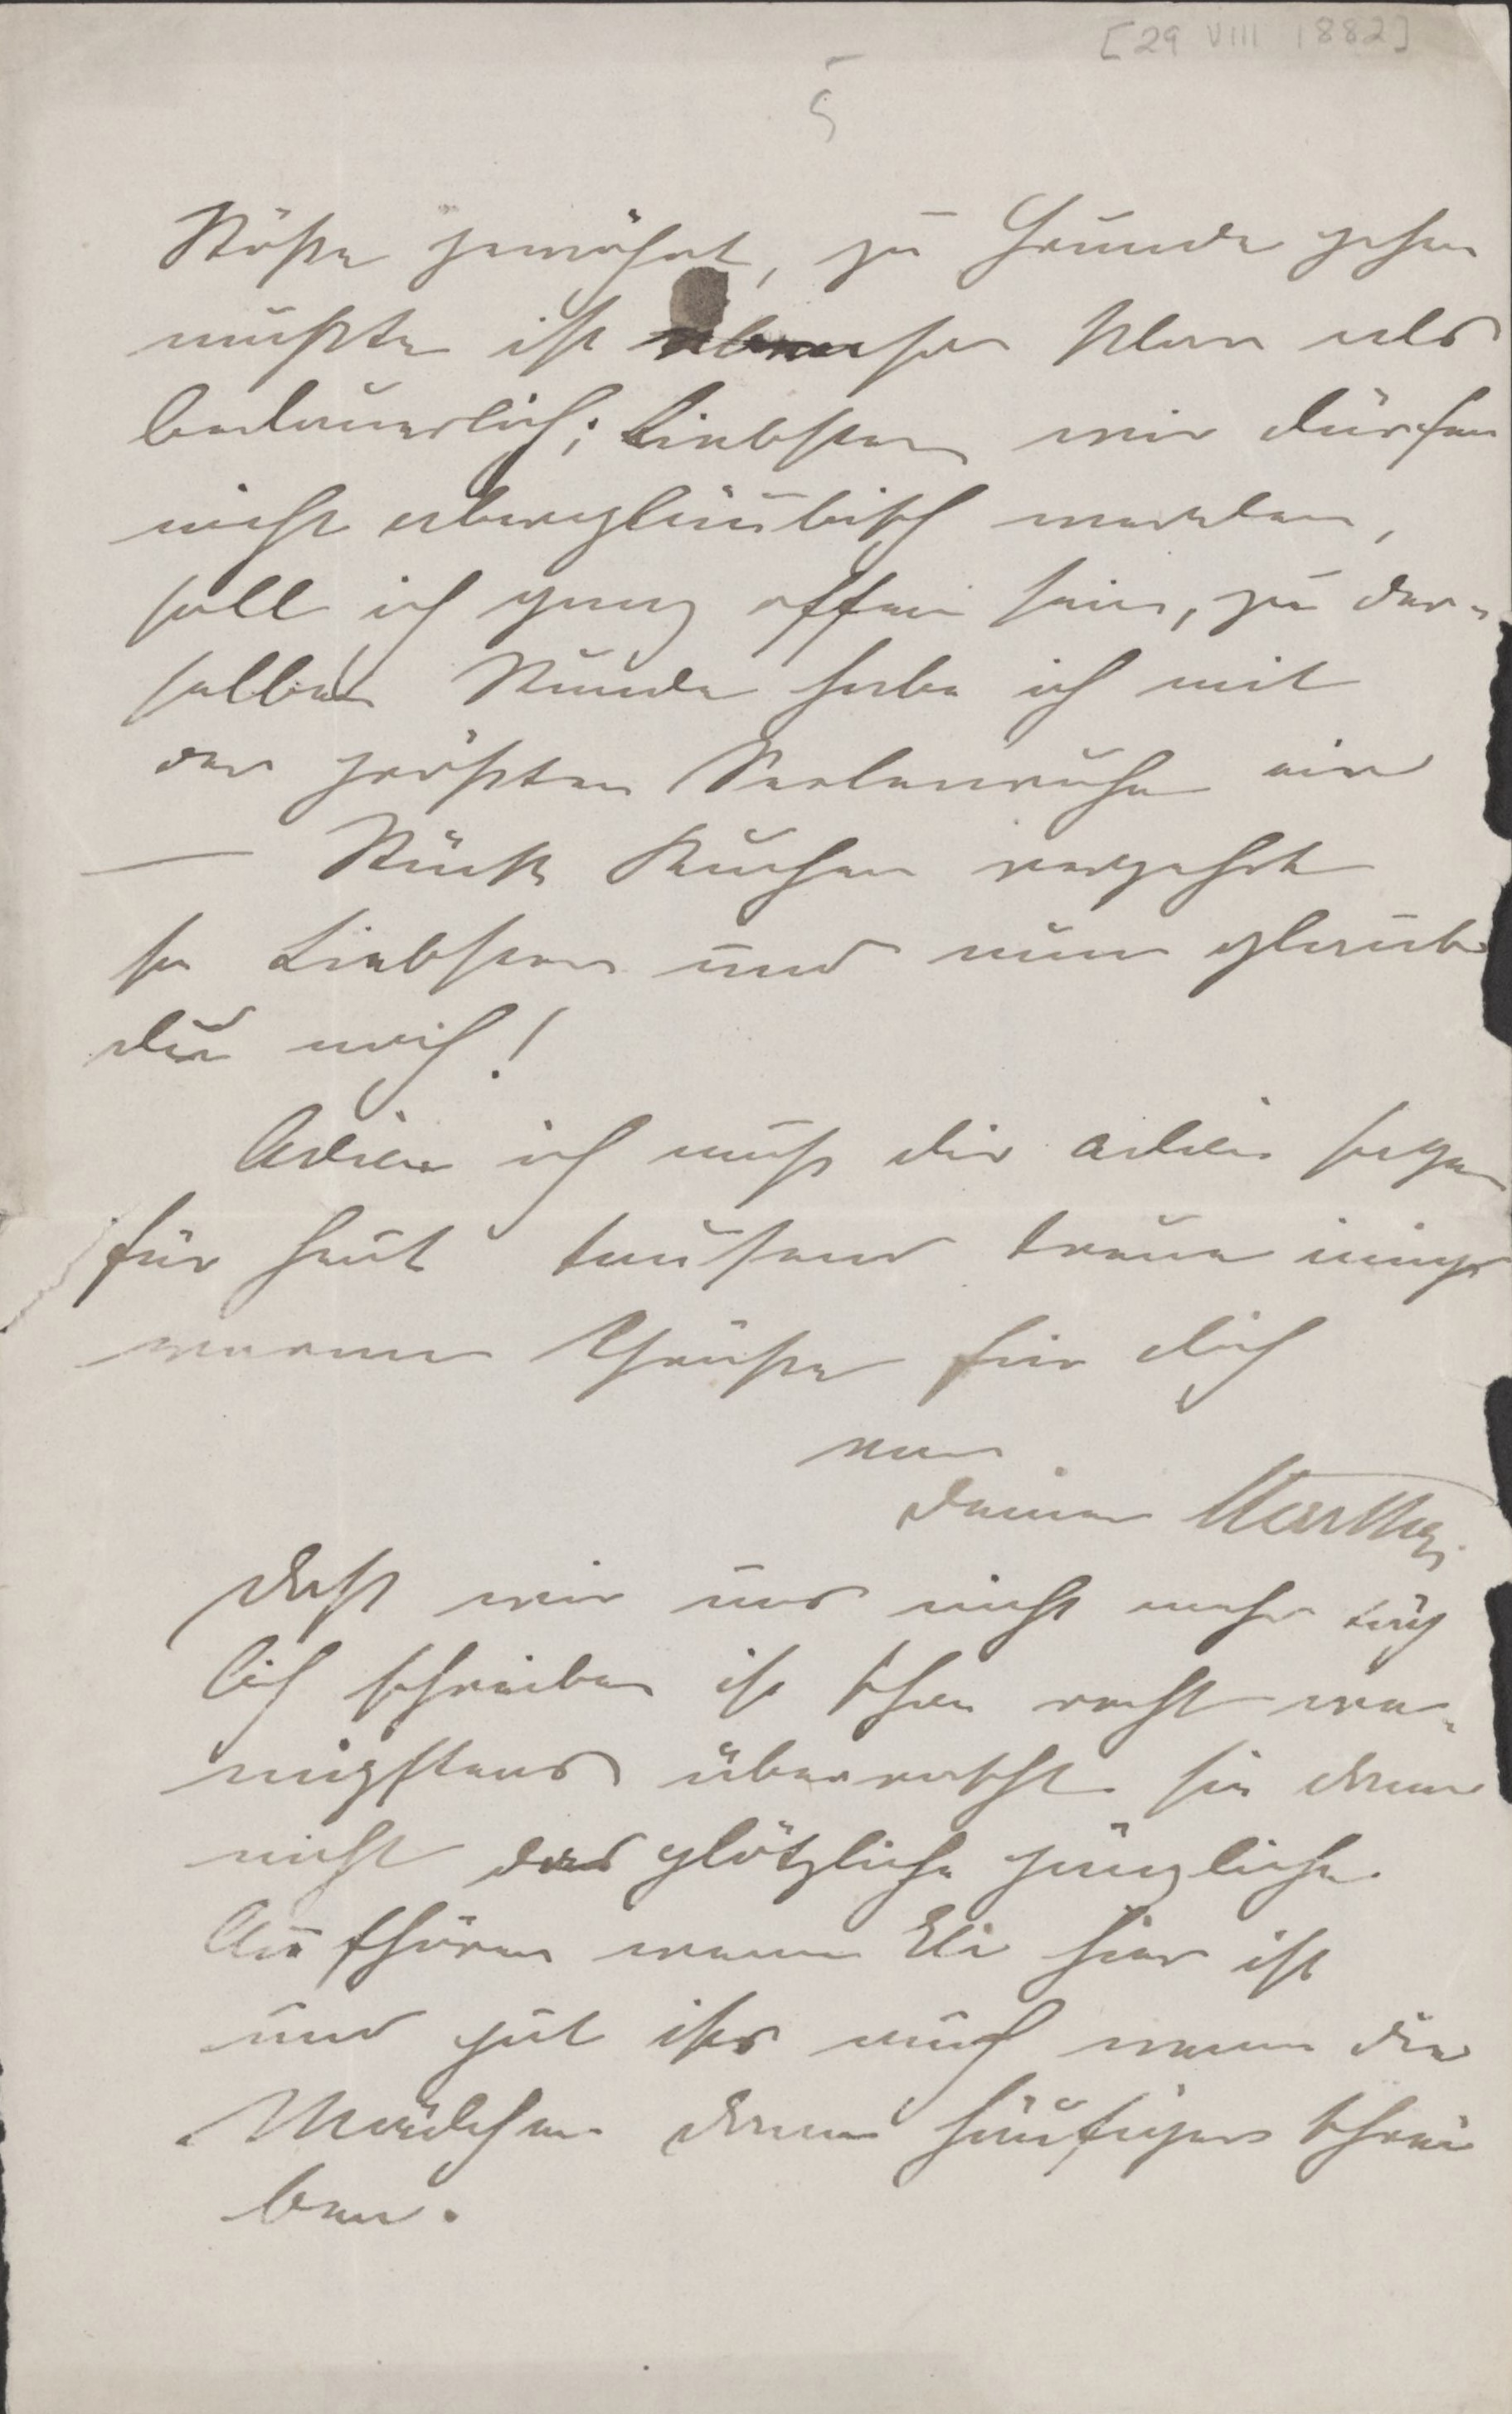 [29 VIII 1882]
5
Stöße gewöhnt, zu Grunde gehen
mußte ist eher klar als
bedauerlich; Liebster wir dürfen
nicht abergläubisch werden,
soll ich ganz offen sein, zu der-
selben Stunde habe ich mit
der größten Seelenruhe ein
— Stück Kuchen verzehrt
so Liebster und nun glaube
du mich!
Adieu ich muß dir adieu sagen
für heut tausend treue innige
warme Grüße für dich
von
deiner Martha.
Daß wir uns nicht mehr täg
lich schreiben ist schon recht we-
nigstens überrascht sie dann
nicht das plötzliche gänzliche
Aufhören wenn Eli hier ist
und gut ists auch wenn die
Mädchen dann häufiger schrei
ben.